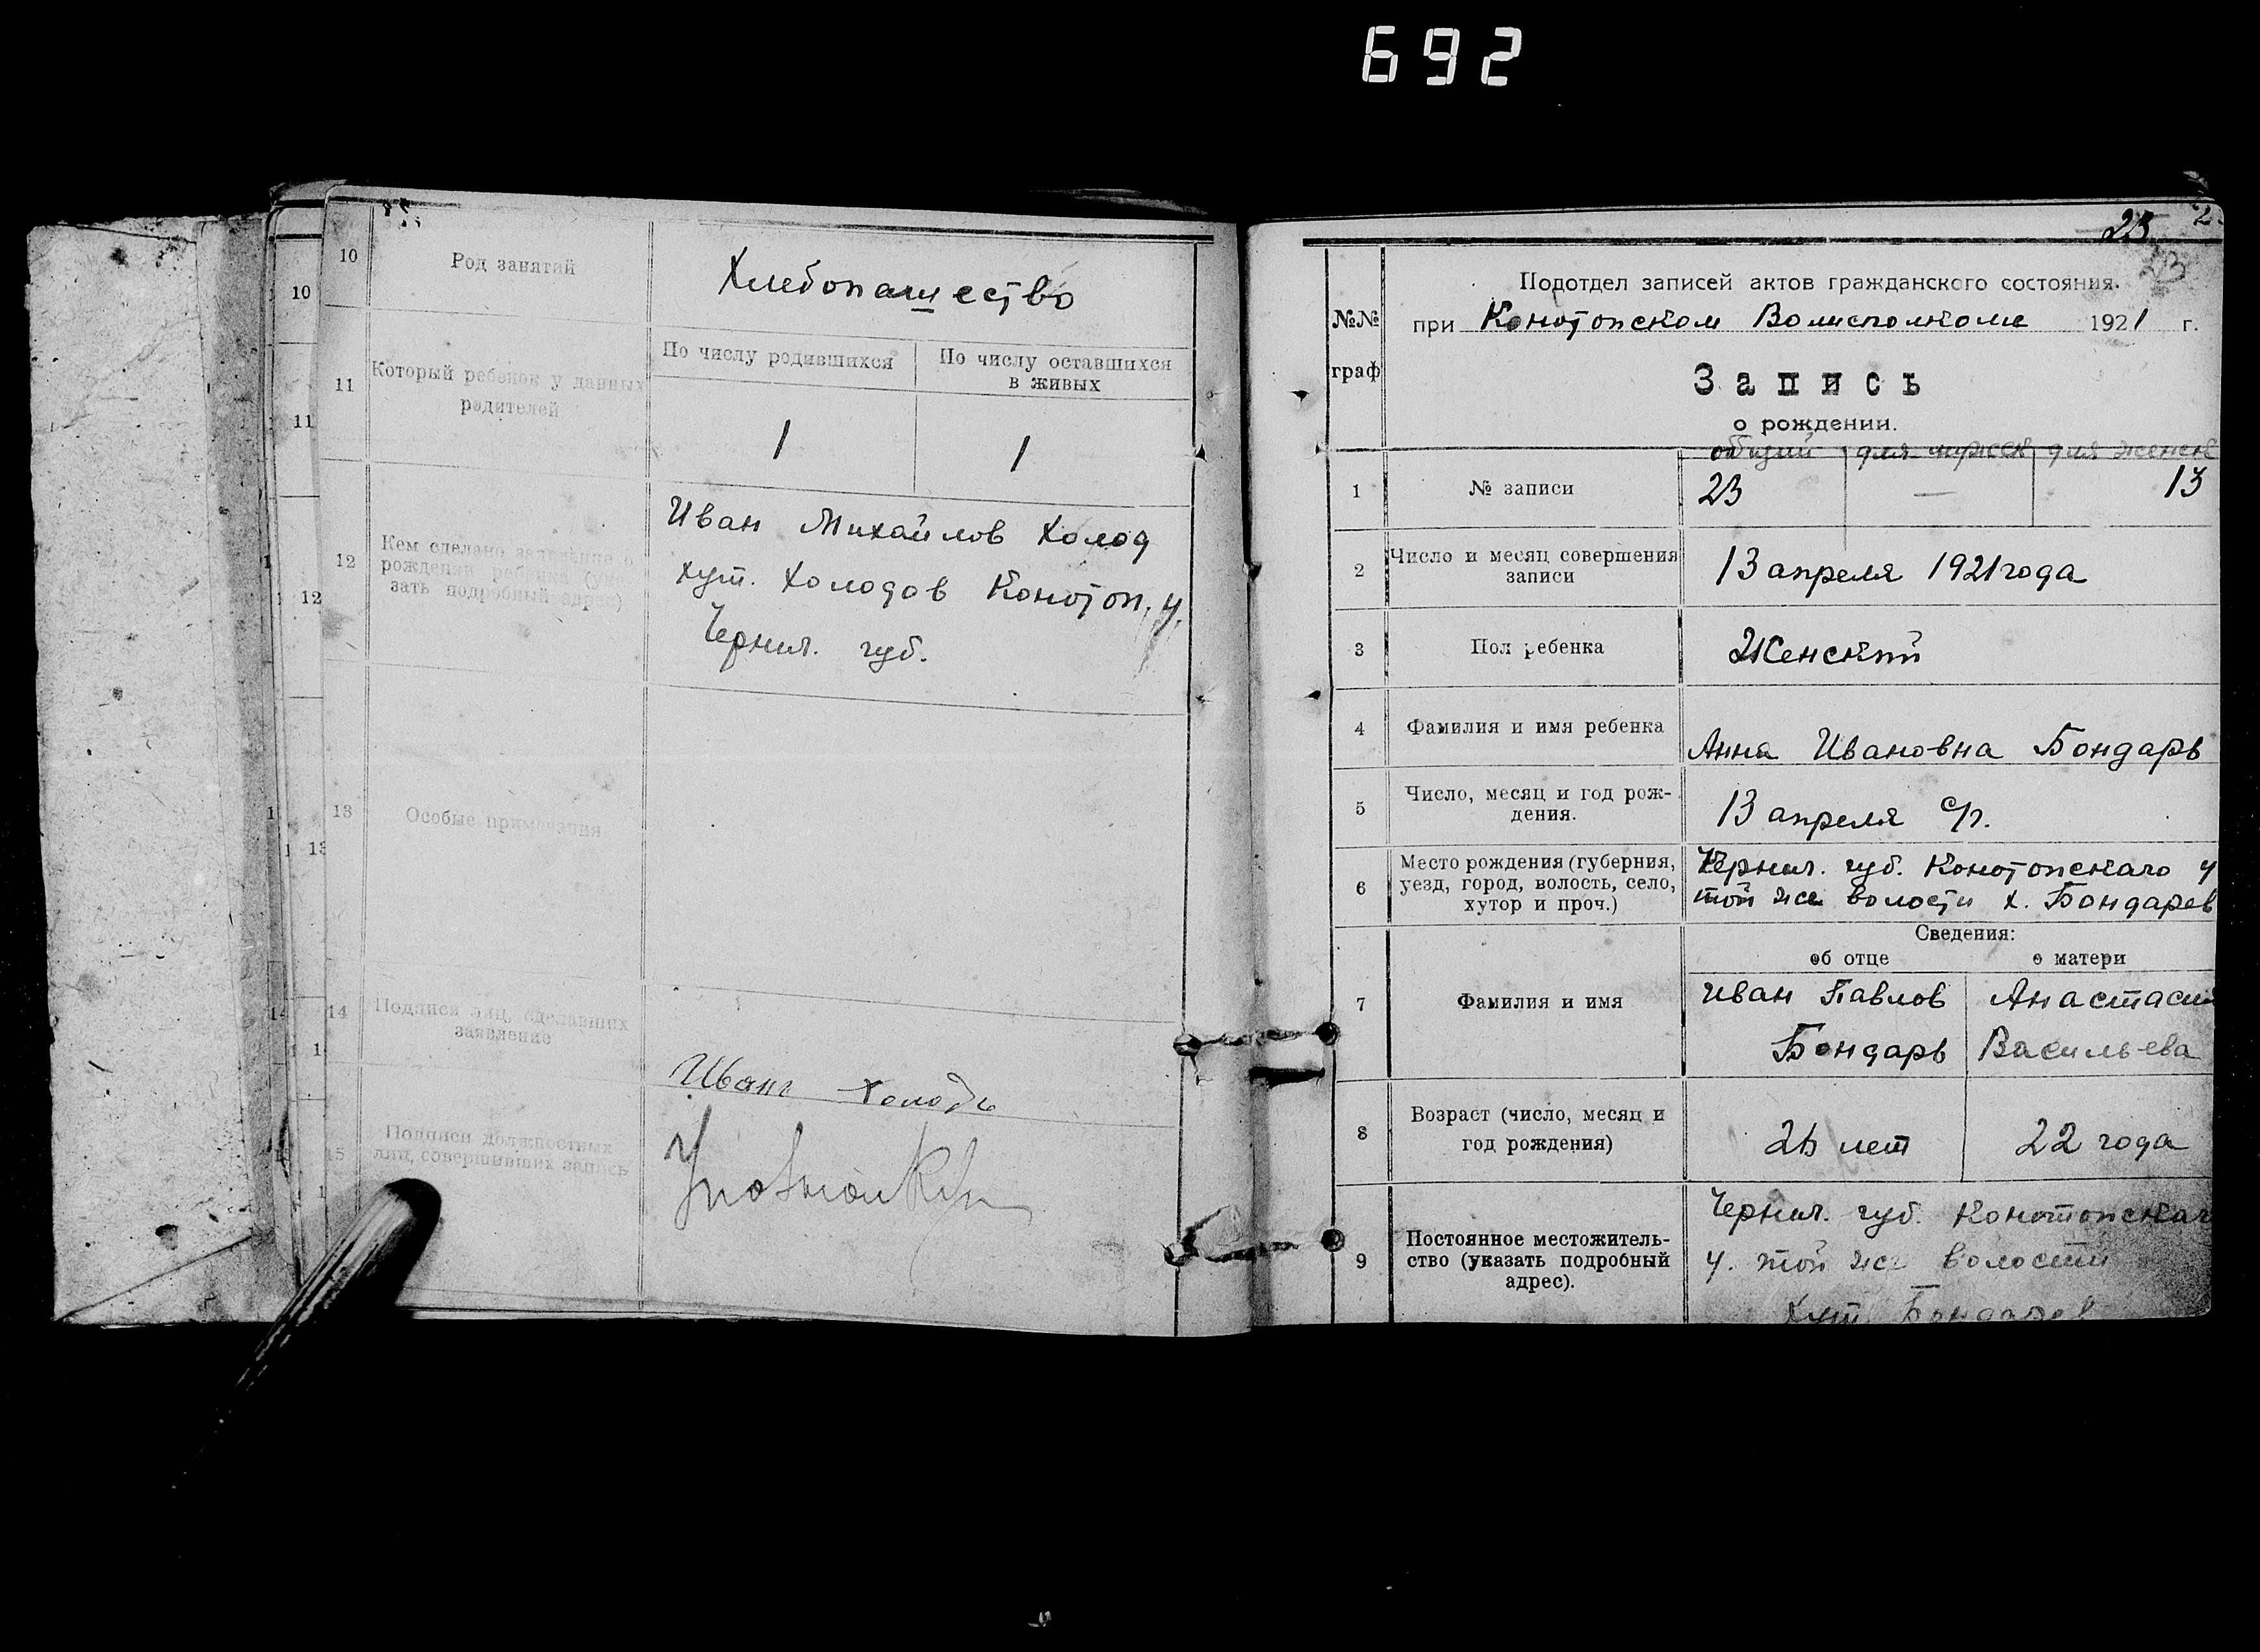 692
10
Род занятий
Хлебопашество
11
Который ребенок у данных
родителей
По числу родившихся
По числу оставшихся
в живых
1
1
12
Кем сделано заявление о
рождении ребенка (ука-
зать подробный адрес)
Иван Михайлов Холод
хут. Холодов Конотоп. у.
Черниг. губ.
13
Особые примечания
14
Подписи лиц, сделавших
заявление
Иван Холодъ
15
Подписи должностных
лиц, совершивших запись
10
11
12
23
№№
граф
Подотдел записей актов гражданского состояния.
при Конотопском Волисполкоме 1921 г.
Запись
о рождении.
общий для мужск для женск
1
№ записи
23
—
13
2
Число и месяц совершения
записи
13 апреля 1921 года
3
Пол ребенка
Женский
4
Фамилия и имя ребенка
Анна Ивановна Бондарь
5
Число, месяц и год рож-
дения.
13 апреля с/г.
6
Место рождения (губерния,
уезд, город, волость, село,
хутор и проч.)
Черниг. губ. Конотопскаго у
той же волости х. Бондарев
Сведения:
об отце
о матери
7
Фамилия и имя
Иван Павлов
Бондарь
Анастасия
Васильева
8
Возраст (число, месяц и
год рождения)
лет
22 года
9
Постоянное местожитель-
ство (указать подробный
адрес).
Черниг. губ. Конотопскаг
у. той же волости
Хут Бондарев